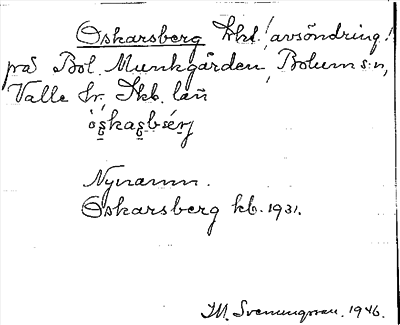 Oskarsberg kbl. (avsöndring)
på Bol. Munkgården, Bolums:n,
Valle hr, Skb. län
Nynamn.
Oskarsberg kb. 1931.
M. Svenungsson. 1946.